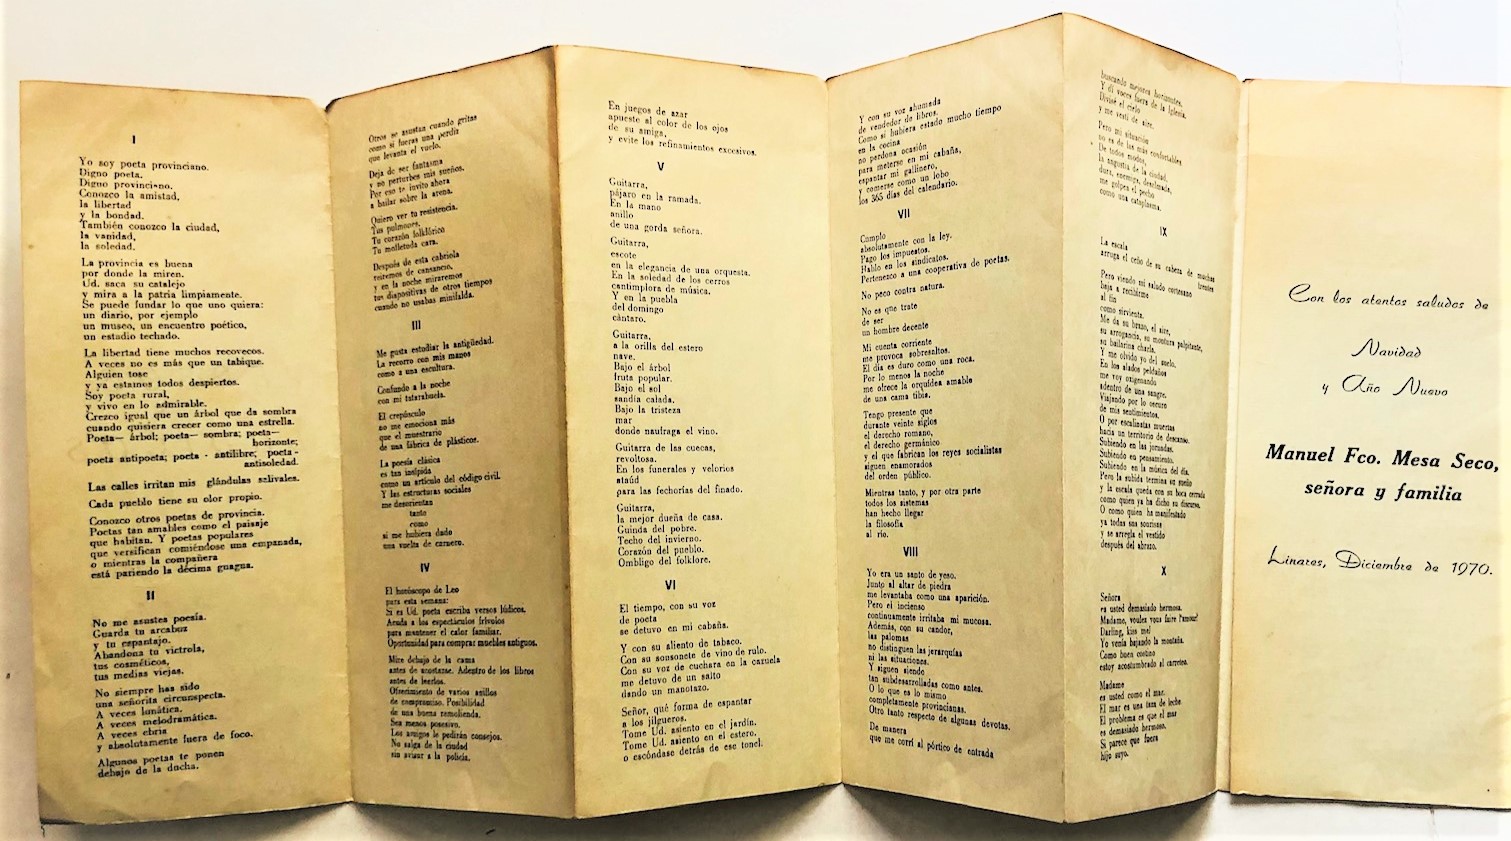 I
Yo soy poeta provinciano.
Digno poeta.
Digno provinciano.
Conozco la amistad,
la libertad
y la bondad.
También conozco la ciudad,
la vanidad,
la soledad.
La provincia es buena
por donde la miren.
Ud. saca su catalejo
y mira a la patria limpiamente.
Se puede fundar lo que uno quiera:
un diario, por ejemplo
un museo, un encuentro poético,
un estadio techado.
La libertad tiene muchos recovecos.
A veces no es más que un tabique.
Alguien tose
y ya estamos todos despiertos.
Soy poeta rural,
y vivo en lo admirable.
Crezco igual que un árbol que da sombra
cuando quisiera crecer como una estrella.
Poeta— árbol; poeta— sombra; poeta—
horizonte;
poeta antipoeta; poeta - antilibre; poeta -
antisoledad.
Las calles irritan mis glándulas salivales.
Cada pueblo tiene su olor propio.
Conozco otros poetas de provincia.
Poetas tan amables como el paisaje
que habitan. Y poetas populares
que versifican comiéndose una empanada,
o mientras la compañera
está pariendo la décima guagua.
II
No me asustes poesía.
Guarda tu arcabuz
y tu espantajo.
Abandona tu victrola,
tus cosméticos,
tus medias viejas.
No siempre has sido
una señorita circunspecta.
A veces lunática.
A veces melodramática.
A veces ebria
y absolutamente fuera de foco.
Algunos poetas te ponen
debajo de la ducha.
Otros se asustan cuando gritas
como si fueras una perdiz
que levanta el vuelo.
Deja de ser fantasma
y no perturbes mis sueños.
Por eso te invito ahora
a bailar sobre la arena.
Quiero ver tu resistencia.
Tus pulmones.
Tu corazón folklórico
Tu molletuda cara.
Después de esta cabriola
reiremos de cansancio,
y en la noche miraremos
tus dispositivas de otros tiempos
cuando no usabas minifalda.
III
Me gusta estudiar la antigüedad.
La recorro con mis manos
como a una escultura.
Confundo a la noche
con mi tatarabuela.
El crepúsculo
no me emociona más
que el muestrario
de una fábrica de plásticos.
La poesía clásica
es tan insípida
como un artículo del código civil.
Y las estructuras sociales
me desorientan
tanto
como
si me hubiera dado
una vuelta de carnero.
IV
El horóscopo de Leo
para esta semana:
Si es Ud. poeta escriba versos lúdicos.
Acuda a los espectáculos frívolos
para mantener el calor familiar.
Oportunidad para comprar muebles antiguos.
Mire debajo de la cama
antes de acostarse. Adentro de los libros
antes de leerlos.
Ofrecimiento de varios anillos
de compromiso. Posibilidad
de una buena remolienda.
Sea menos posesivo.
Los amigos le pedirán consejos.
No salga de la ciudad
sin avisar a la policía.
En juegos de azar
apueste al color de los ojos
de su amiga,
y evite los refinamientos excesivos.
V
Guitarra,
pájaro en la ramada.
En la mano
anillo
de una gorda señora.
Guitarra,
escote
en la elegancia de una orquesta.
En la soledad de los cerros
cantimplora de música.
Y en la puebla
del domingo
cántaro.
Guitarra,
a la orilla del estero
nave.
Bajo el árbol
fruta popular.
Bajo el sol
sandía calada.
Bajo la tristeza
mar
donde naufraga el vino.
Guitarra de las cuecas,
revoltosa.
En los funerales y velorios
ataúd
para las fechorías del finado.
Guitarra,
la mejor dueña de casa.
Guinda del pobre.
Techo del invierno.
Corazón del pueblo.
Ombligo del folklore.
VI
El tiempo, con su voz
de poeta
se detuvo en mi cabaña.
Y con su aliento de tabaco.
Con su sonsonete de vino de rulo.
Con su voz de cuchara en la cazuela
me detuvo de un salto
dando un manotazo.
Señor, qué forma de espantar
a los jilgueros.
Tome Ud. asiento en el jardín.
Tome Ud. asiento en el estero.
o escóndase detrás de ese tonel.
Y con su voz ahumada
de vendedor de libros.
Como si hubiera estado mucho tiempo
en la cocina
no perdona ocasión
para meterse en mi cabaña,
espantar mi gallinero,
y comerse como un lobo
los 365 días del calendario.
VII
Cumplo
absolutamente con la ley.
Pago los impuestos.
Hablo en los sindicatos.
Pertenezco a una cooperativa de poetas.
No peco contra natura.
No es que trate
de ser
un hombre decente
Mi cuenta corriente
me provoca sobresaltos.
El día es duro como una roca.
Por lo menos la noche
me ofrece la orquídea amable
de una cama tibia.
Tengo presente que
durante veinte siglos
el derecho romano,
el derecho germánico
y el que fabrican los reyes socialistas
siguen enamorados
del orden público.
Mientras tanto, y por otra parte
todos los sistemas
han hecho llegar
la filosofía
al río.
VIII
Yo era un santo de yeso.
Junto al altar de piedra
me levantaba como una aparición.
Pero el incienso
continuamente irritaba mi mucosa.
Además, con su candor,
las palomas
no distinguen las jerarquías
ni las situaciones.
Y siguen siendo
tan subdesarrolladas como antes.
O lo que es lo mismo
completamente provincianas.
Otro tanto respecto de algunas devotas.
De manera
que me corrí al pórtico de entrada
buscando mejores horizontes.
Y di voces fuera de la Iglesia.
Divisé el cielo
y me vestí de aire.
Pero mi situación
no es de las más confortables
De todos modos,
la angustia de la ciudad,
dura, enemiga, desalmada,
me golpea el pecho
como una cataplasma.
IX
La escala
arruga el ceño de su cabeza de muchas
frentes
Pero viendo mi saludo cortesano
baja a recibirme
al fin
como sirvienta.
Me da su brazo, el aire,
su arrogancia, su montura palpitante,
su bailarina charla.
Y me olvido yo del suelo.
En los alados peldaños
me voy oxigenando
adentro de una sangre.
Viajando por lo oscuro
de mis sentimientos.
O por escalinatas muertas
hacia un territorio de descanso.
Subiendo en las jornadas.
Subiendo en pensamiento.
Subiendo en la música del día.
Pero la subida termina su sueño
y la escala queda con su boca cerrada
como quien ya ha dicho su discurso.
O como quien ha manifestado
ya todas sus sonrisas
y se arregla el vestido
después del abrazo.
X
Señora
es usted demasiado hermosa.
Madame, voulez vous faire l'amour?
Darling, kiss me!
Yo venía bajando la montaña.
Como buen costino
estoy acostumbrado al carreteo.
Madame
es usted como el mar.
El mar es una taza de leche.
El problema es que el mar
es demasiado hermoso.
Si parece que fuera
hijo suyo.
Con los atentos saludos de
Navidad
y Año Nuevo
Manuel Fco. Mesa Seco,
señora y familia
Linares, Diciembre de 1970.